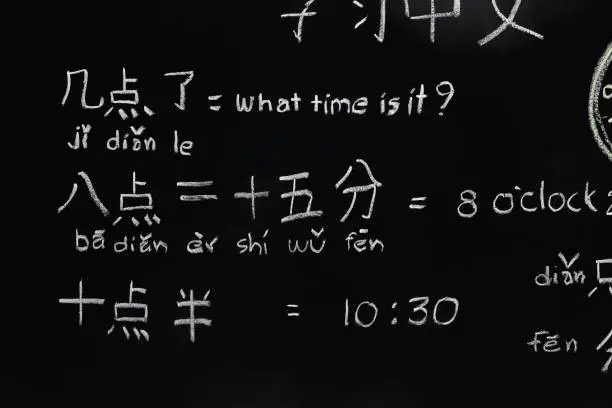 学习中文
几点了 = what time is it?
jǐ diǎn le
八点二十五分 = 8 o'clock
bā diǎn èr shí wǔ fēn
十点半 = 10:30
diǎn
fēn